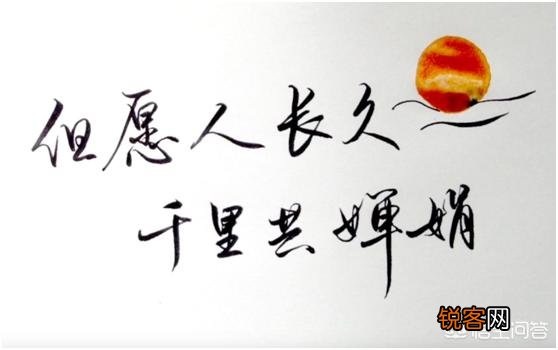 但愿人长久
千里共婵娟
锐客网
悟空问答